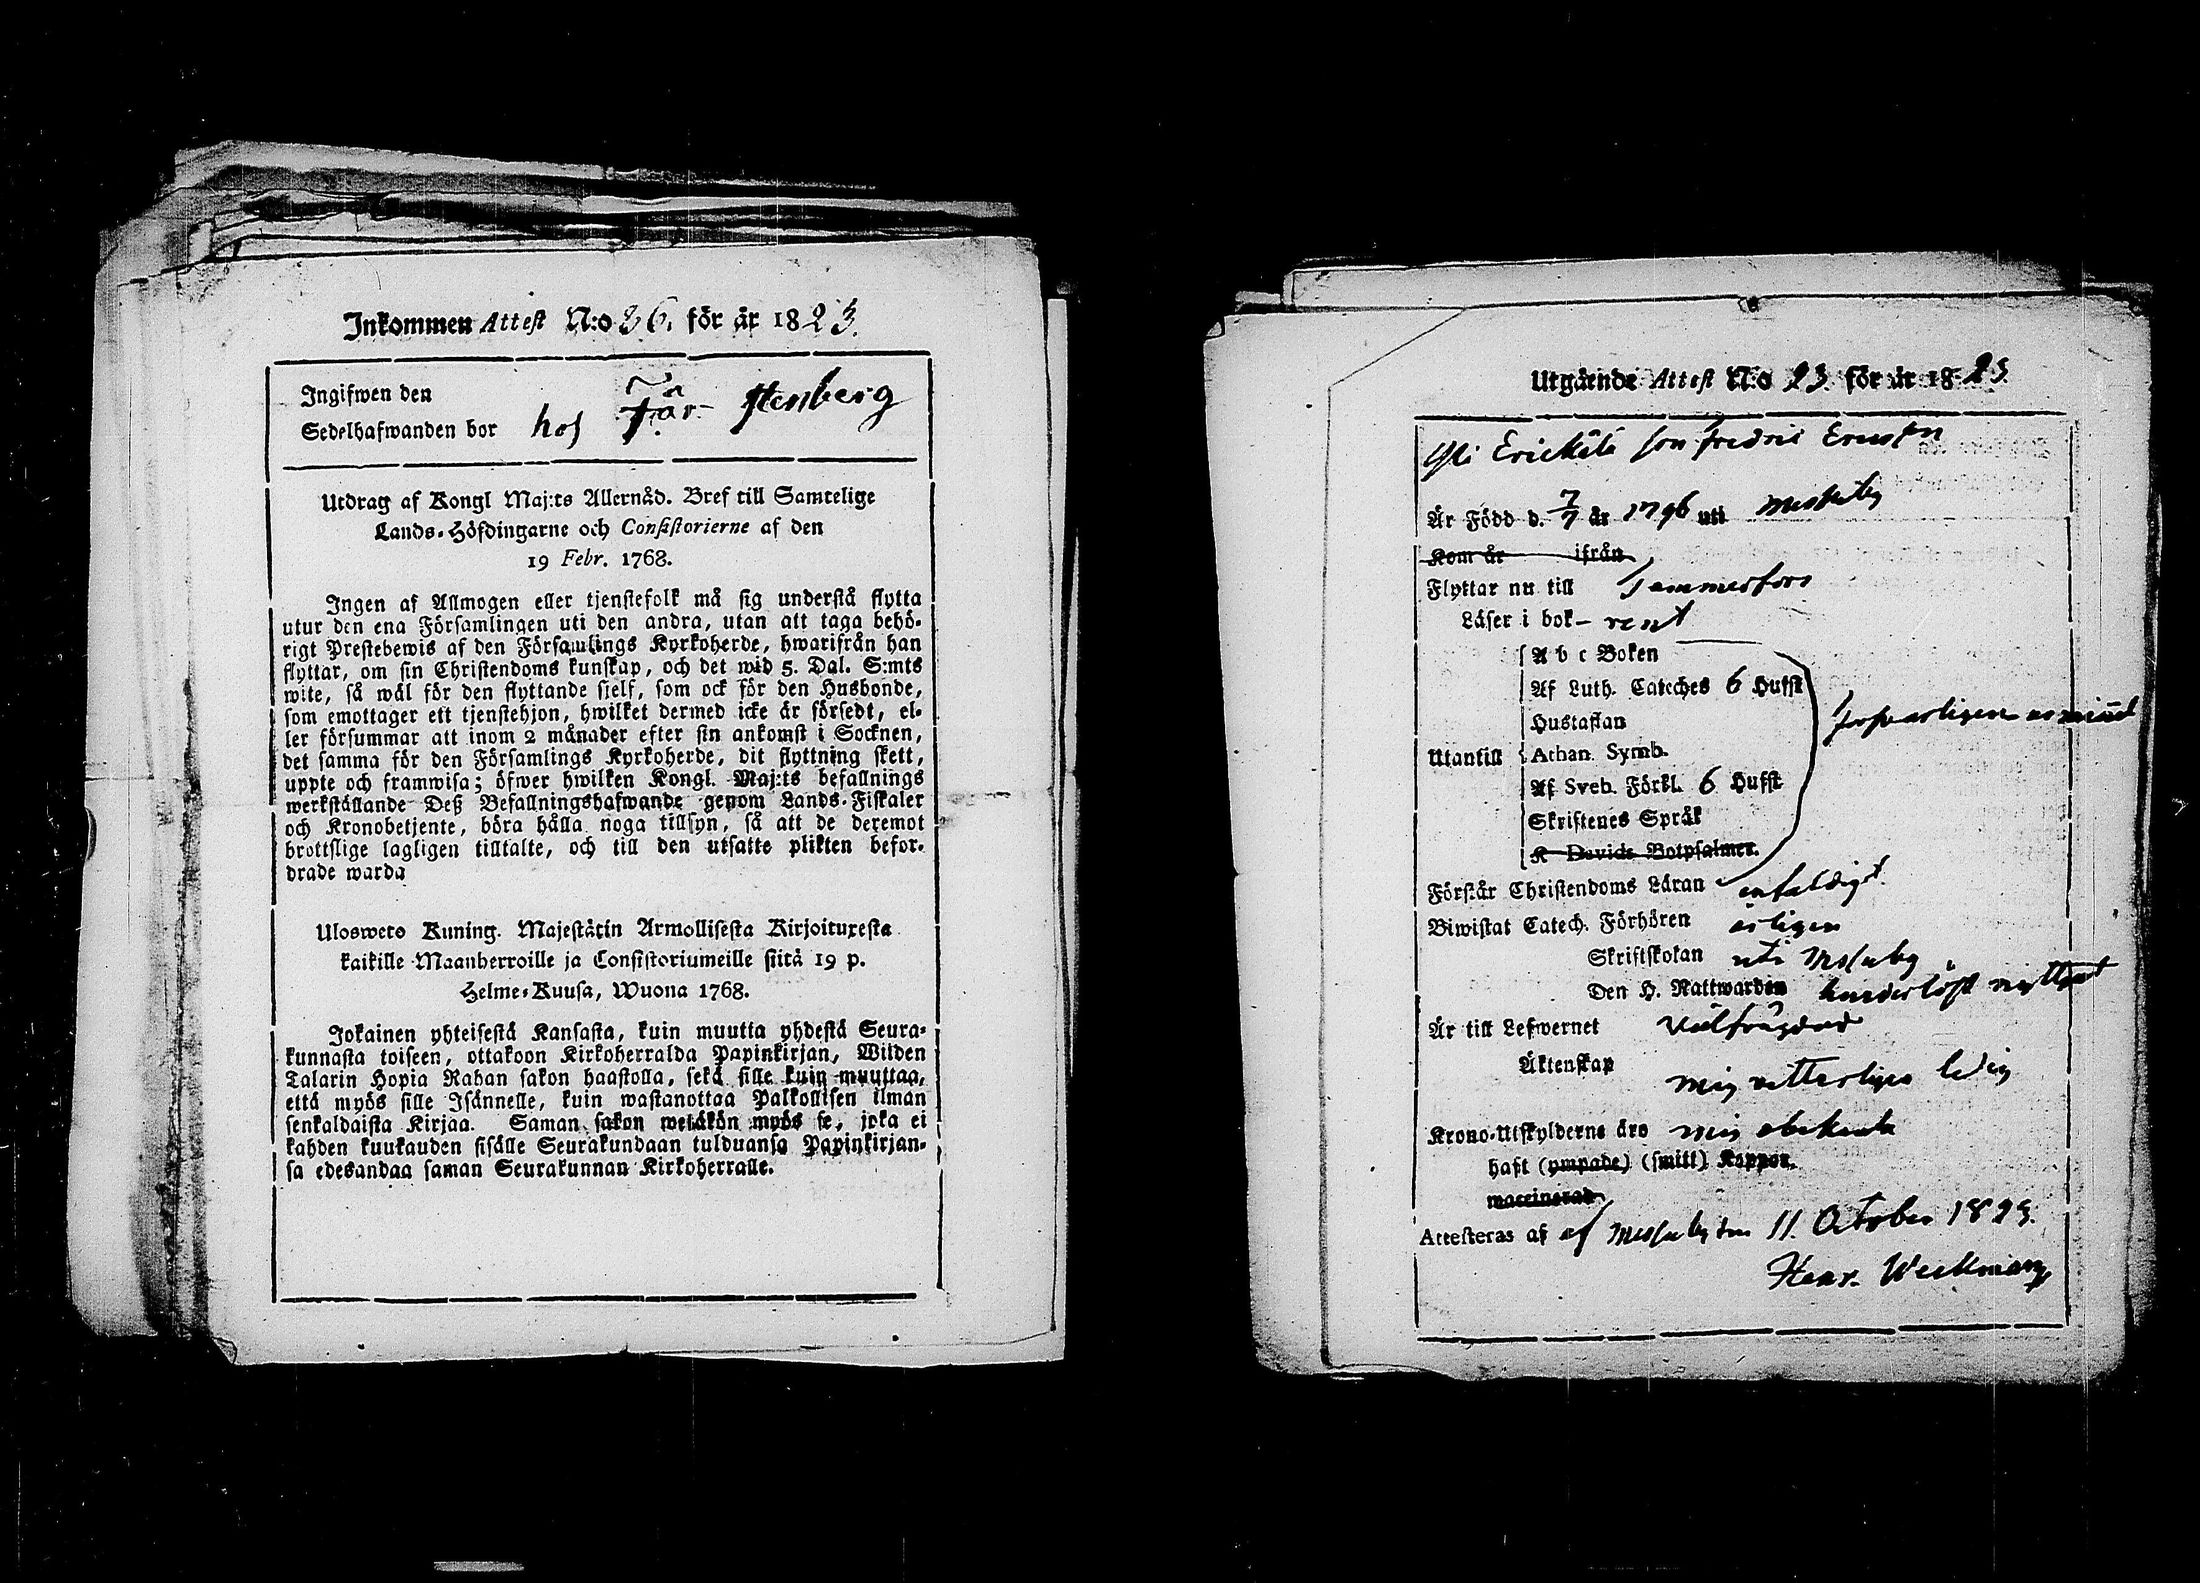 Inkommen Attest N:o 36. för år 1823.
Ingifwen den
Sedelhafwanden bor hos Får Stenberg
Utdrag af Kongl Maj:ts Allernåd. Bref till Samtelige
Lands-Höfdingarne och Consistorierne af den
19 Febr. 1768.
Ingen af Allmogen eller tjenstefolk må sig understå flytta
utur den ena Församlingen uti den andra, utan att taga behö-
rigt Prestebewis af den Församlings Kyrkoherde, hwarifrån han
flyttar, om sin Christendoms kunskap, och det wid 5. Dal. S:mts
wite, så wäl för den flyttande sjelf, som ock för den Husbonde,
som emottager ett tjenstehjon, hwilket dermed icke är försedt, el-
ler försummar att inom 2 månader efter sin ankomst i Socknen,
det samma för den Församlings Kyrkoherde, dit flyttning skett,
uppte och framwisa; öfwer hwilken Kongl. Maj:ts befallnings
werkställande Deß Befallningshafwande genom Lands-Fiskaler
och Kronobetjente, böra hålla noga tillsyn, så att de deremot
brottslige lagligen tilltalte, och till den utsatte plikten befor-
drade warda
Uloswet​o Kuning. Majestätin Armollisesta Kirjoituxesta
kaikille Maanherroille ja Consistoriumeille siitä 19 p.
Helme-Kuusa, Wuona 1768.
Jokainen yhteisestä Kansasta, kuin muutta yhdestä Seura-
kunnasta toiseen, ottakoon Kirkoherralda Papinkirjan, Wilden
Talarin Hopia Rahan sakon haastolla, sekä sille kuin muuttaa,
että myös sille Isännelle, kuin wastanottaa Palkollisen ilman
senkaldaista Kirjaa. Saman sakon wetäkön myös se, joka ei
kahden kuukauden sisälle Seurakundaan tulduansa Papinkirjan-
sa edesandaa saman Seurakunnan Kirkoherralle.
Utgående Attest N:o 23 för år 1823.
Erickilä son Fredric Ericsson
Är Född d. 7/7 år 1796 uti Messuby
Kom år ifrån
Flyttar nu till Tammerfors
Läser i bok - rent
A b c Boken
Af Luth. Cateches 6 Hufst
Hustaflan
Utantill Athan. Symb.
Af Sveb. Förkl. 6 Hufst
Skriftenes Språk
K Davids Botpsalmer.
Förstår Christendoms Läran enfaldigt.
Biwistat Catech. Förhören årligen
Skriftskolan uti Messuby
Den H. Nattwarden hinderlöst nyttjat
Är till Lefwernet välfrägdad
Äktenskap mig vetterligen ledig
Krono-Utskylderne äro mig obekante
haft (ympade) (smitt) Koppor.
waccinerad
Attesteras af af Messuby den 11. October 1823.
Henr. Weckman